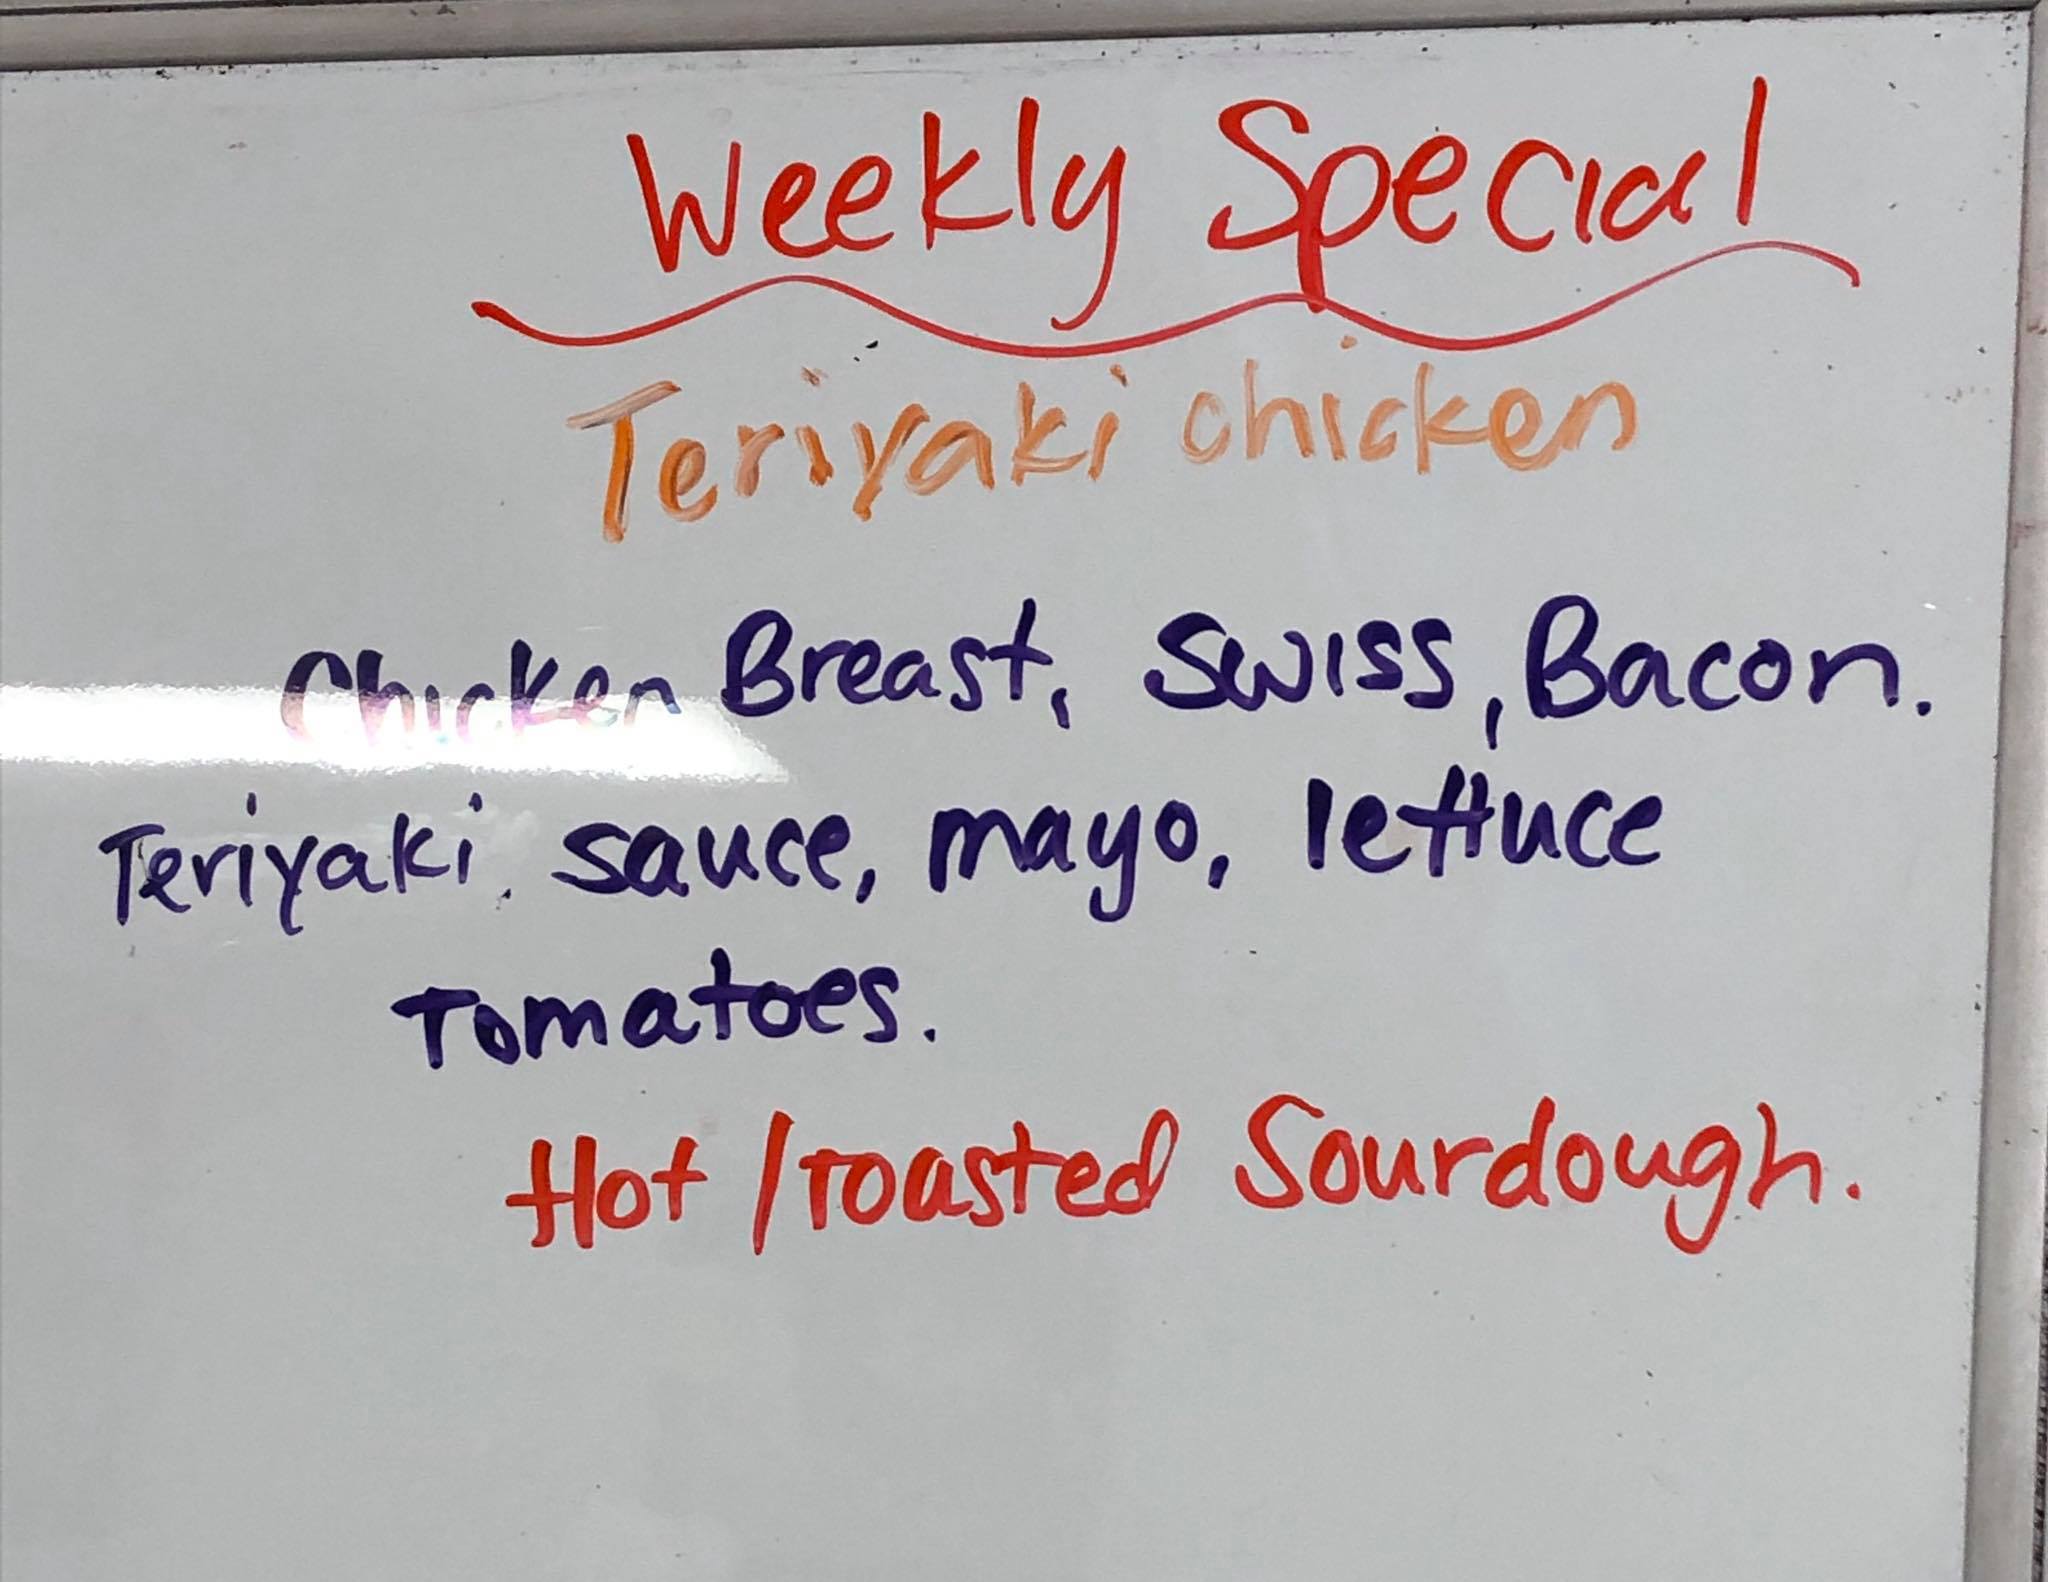 Weekly Special
Teriyaki chicken
Chicken Breast, Swiss, Bacon.
Teriyaki. sauce, mayo, lettuce
Tomatoes.
Hot / Toasted Sourdough.